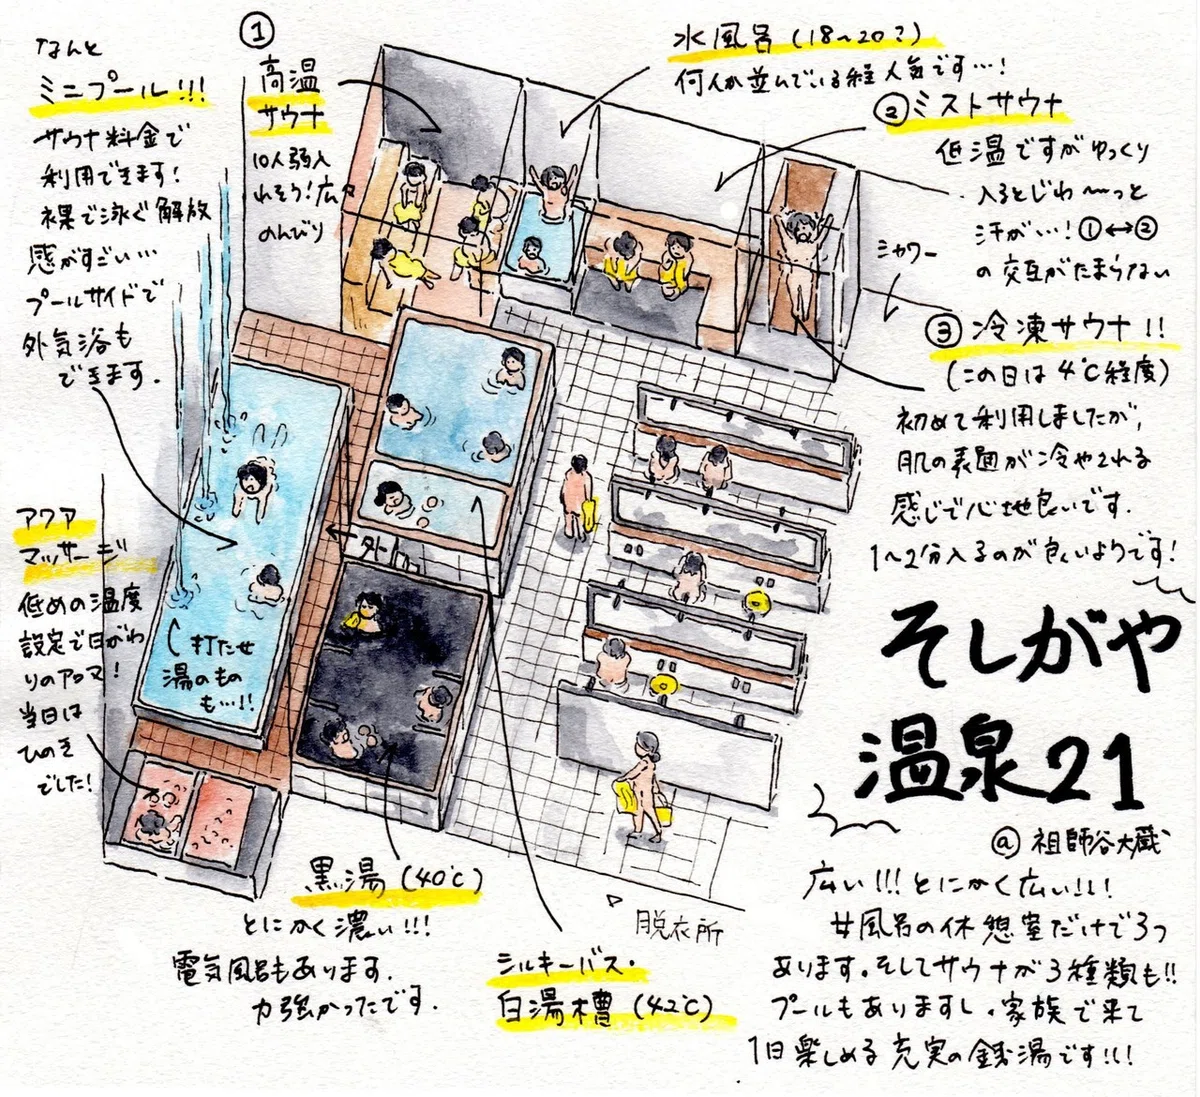 なんと
ミニプール!!!
サウナ料金で
利用できます!
裸で泳ぐ解放
感がすごい…
プールサイドで
外気浴も
できます.
①
高温
サウナ
10人弱入
れそう!広々
のんびり
水風呂(18~20?)
何人か並んでいる程人気です…!
②ミストサウナ
低温ですがゆっくり
入るとじわ~っと
汗が…!①↔②
の交互がたまらない
シャワー
③冷凍サウナ!!
(この日は4℃程度)
初めて利用しましたが,
肌の表面が冷やされる
感じで心地良いです.
1~2分入るのが良いようです!
アロマ
マッサージ
低めの温度
設定で日がわ
りのアロマ!
当日は
ひのき
でした!
外
打たせ
湯のもの
も…!!
そしがや
温泉21
@祖師谷大蔵
広い!!!とにかく広い!!!
女風呂の休憩室だけで3つ
あります。そしてサウナが3種類も!!
プールもありますし、家族で来て
1日楽しめる充実の銭湯です!!!
黒湯(40℃)
とにかく濃い!!!
電気風呂もあります.
力強かったです.
シルキーバス・
白湯槽(42℃)
脱衣所